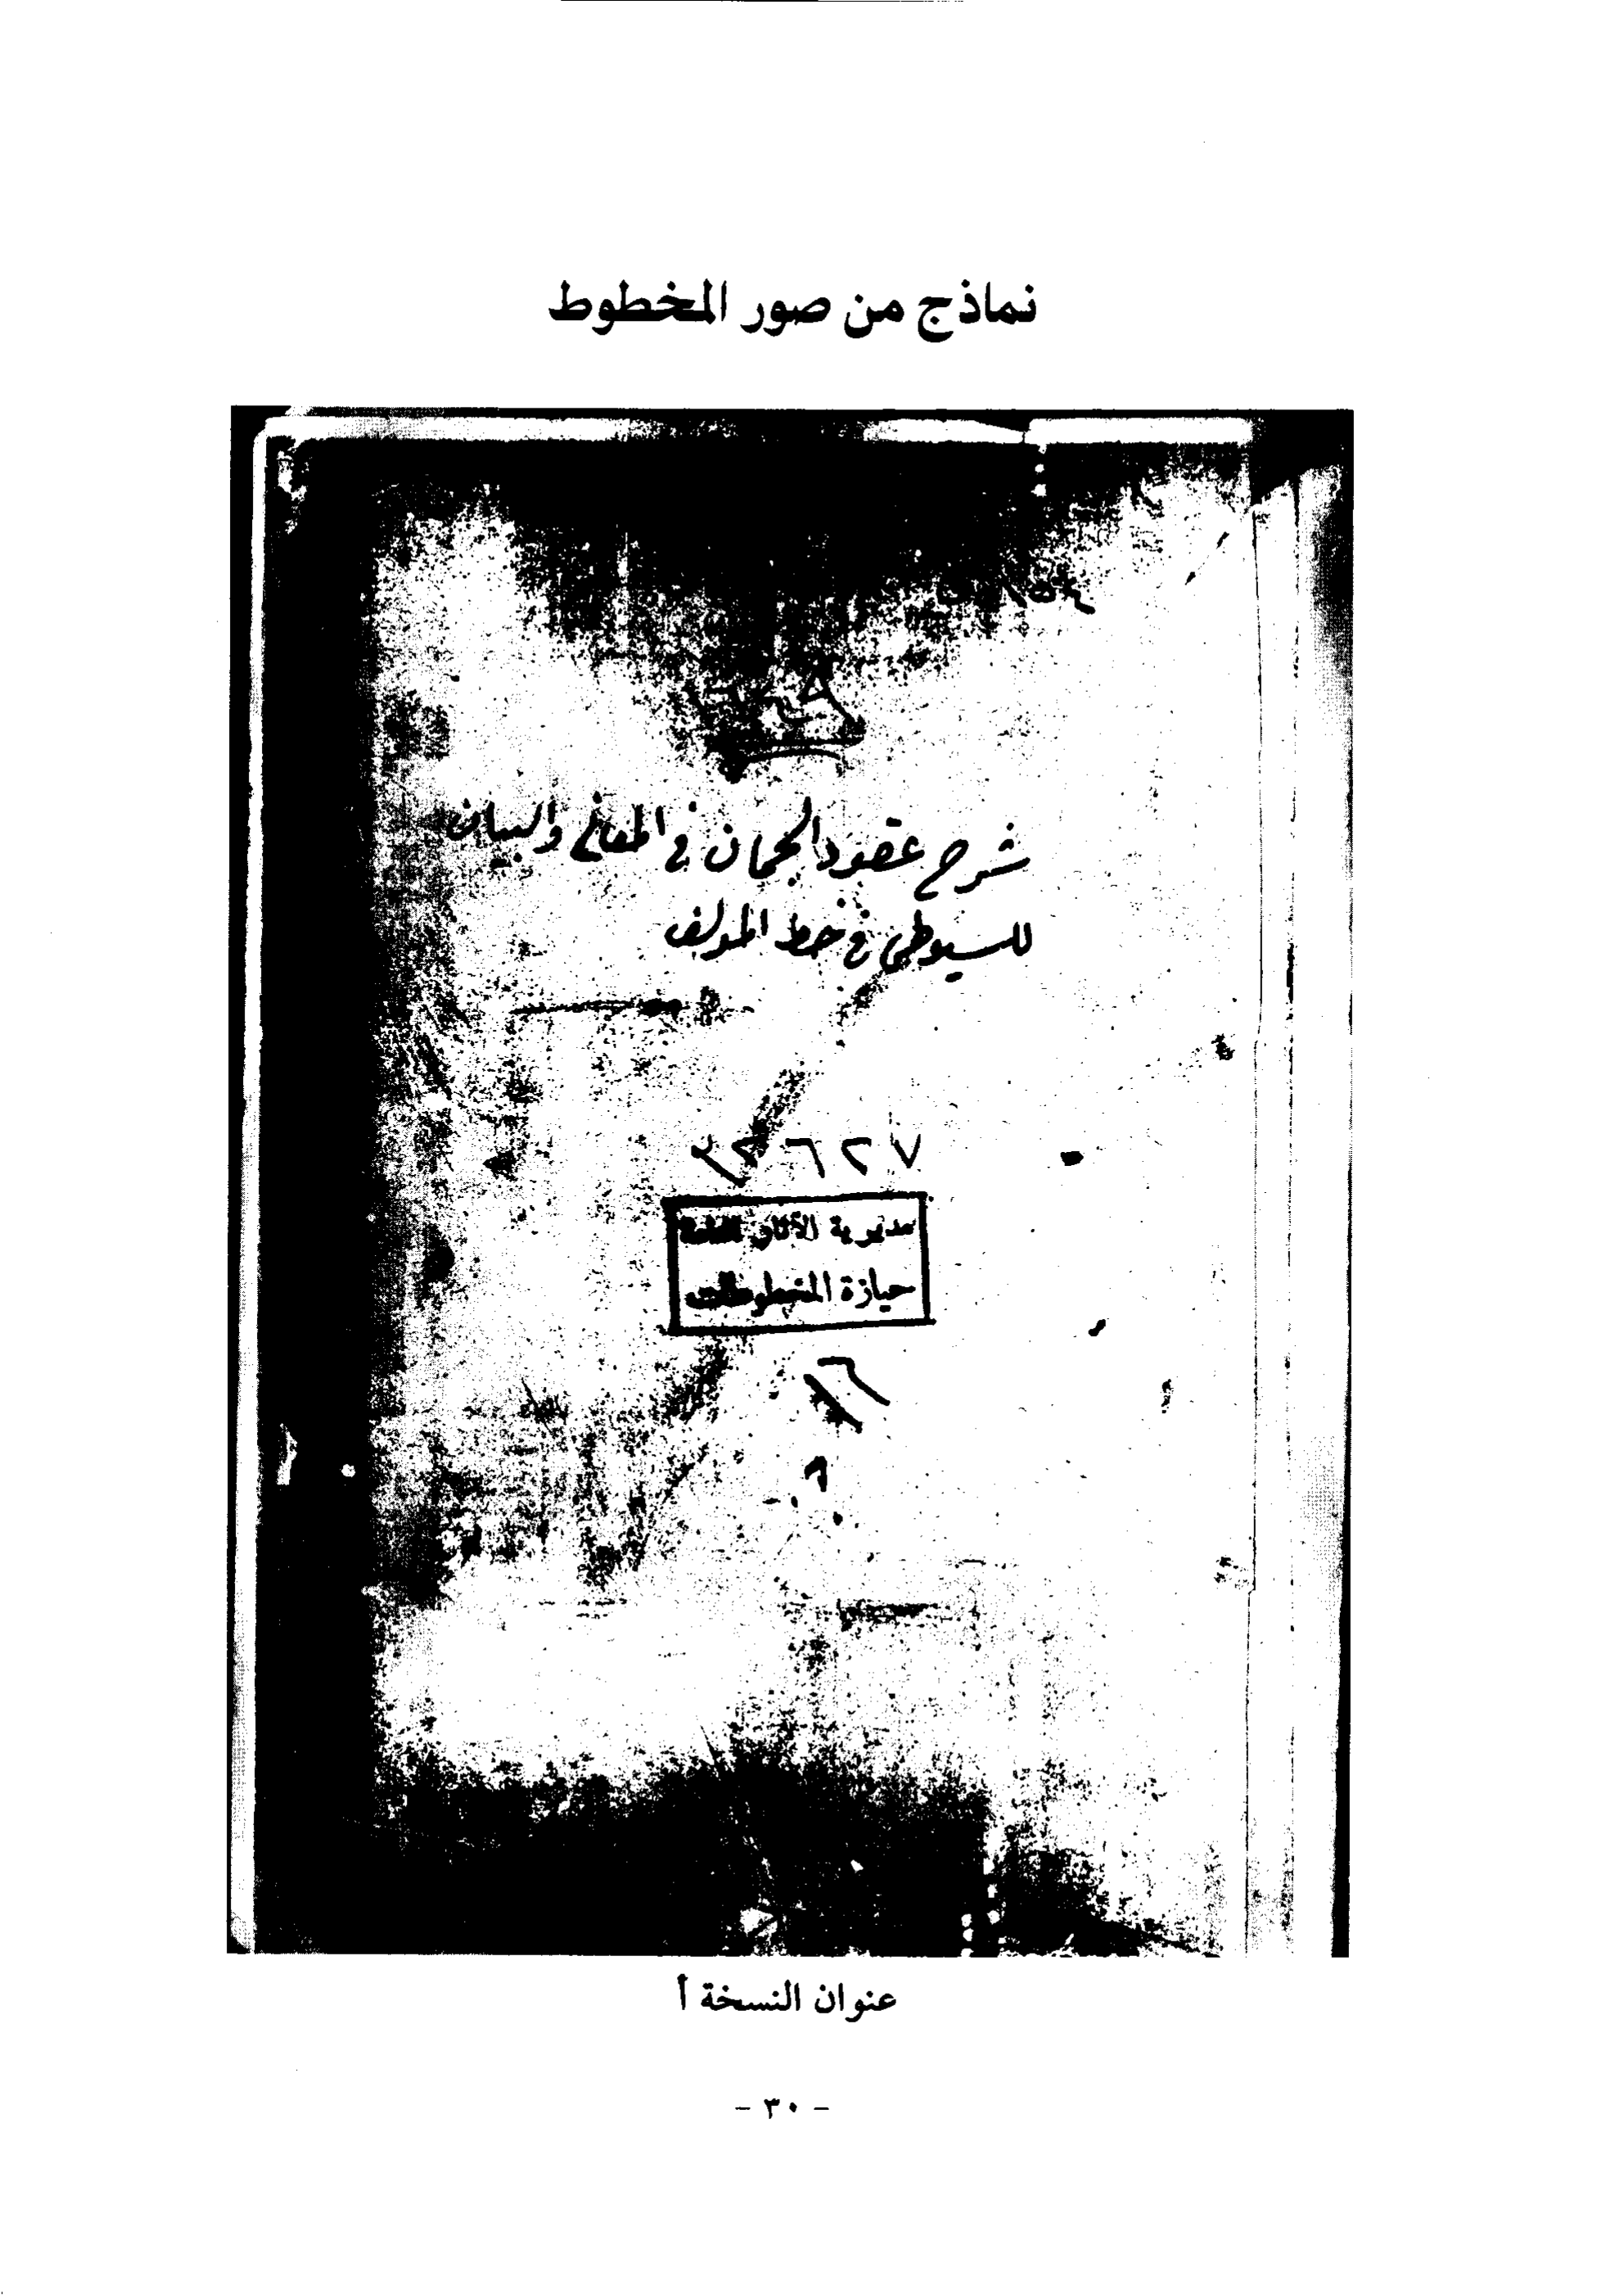 نماذج من صور المخطوط
شرح عقود الجمان في المعاني والبيان
للسيوطي في خط المؤلف
مديرية الآثار العامة
حيازة المخطوطات
عنوان النسخة أ
- ٣٠ -